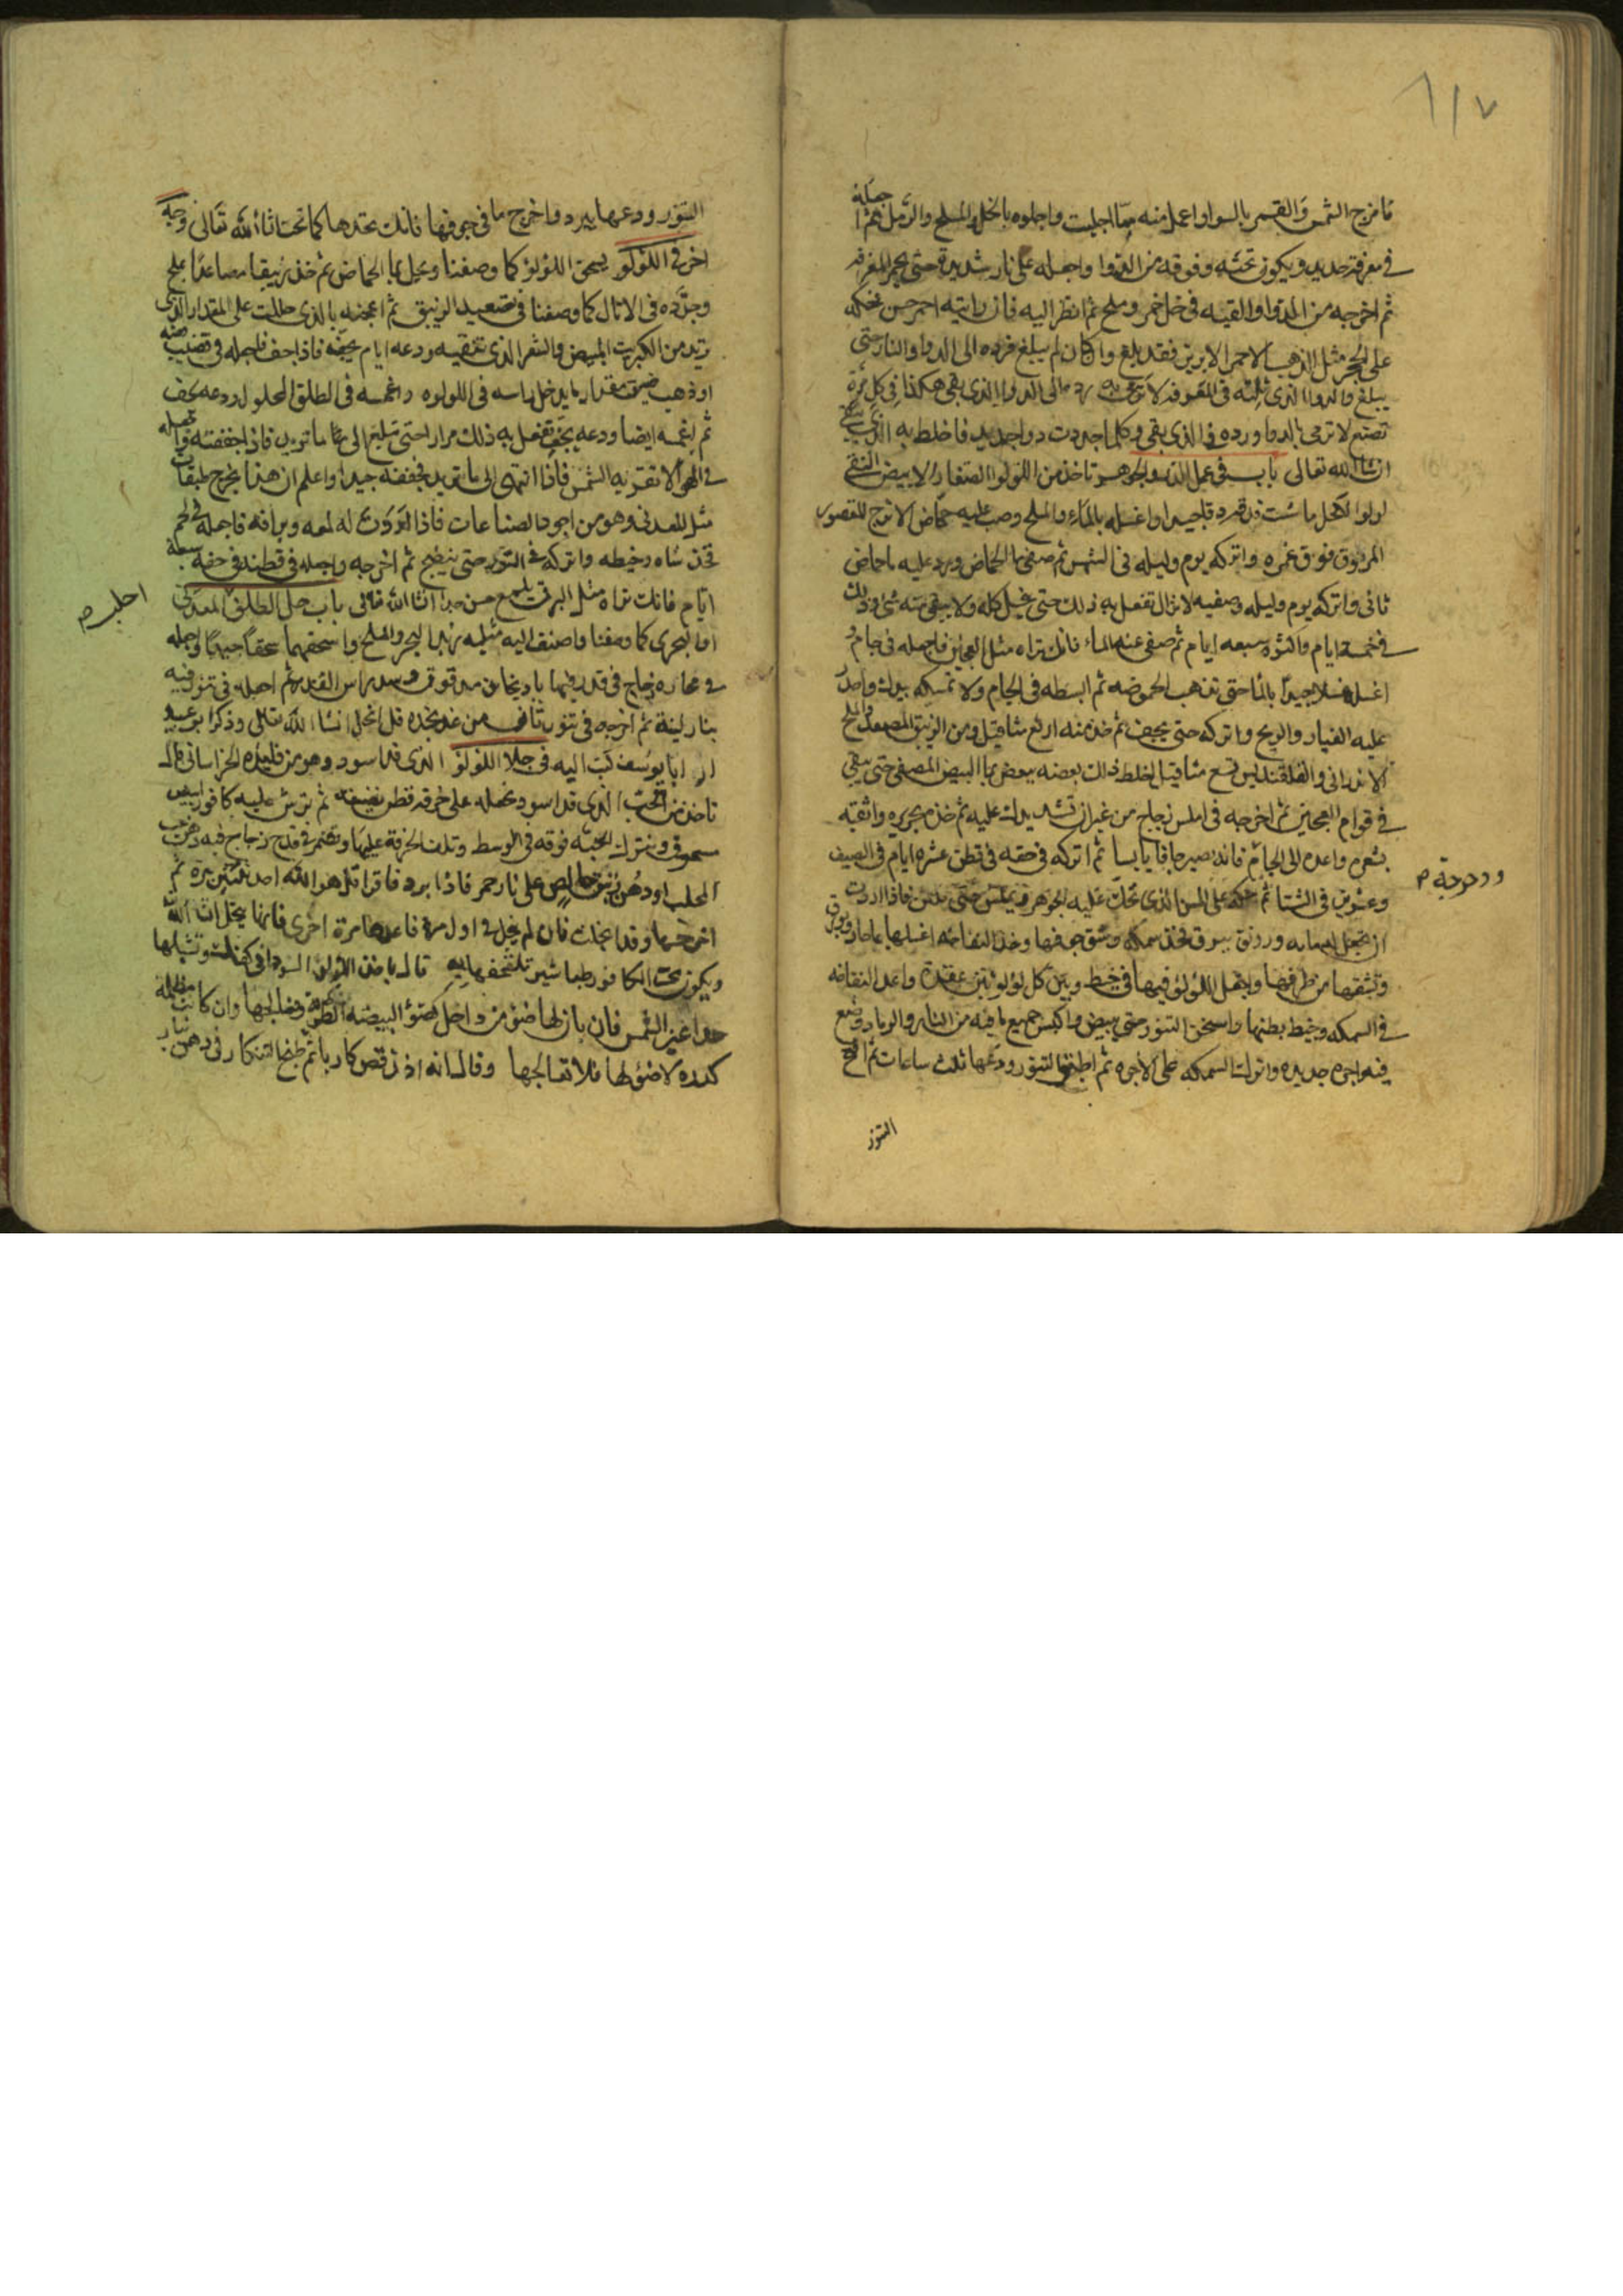 ١١٧
فامزج الشمس والقمر بالسوا واعمل منه مما اجليت واجلوه بالخل والملح والرمل ثم ا جعله
في مغرفة حديد ويكون تحته وفوقه من الدوا واجعله على نار شديدة حتى يحمر المغرفه
ثم اخرجه من الدوا والقيه في خل خمر وملح ثم انظر اليه فان رايته احمر حسن بحكه
على الحجر مثل الذهب الاحمر الابريز فقد بلغ وان كان لم يبلغ فرده الى الدوا والنار حتى
يبلغ والدوا الذي في المغرفه لا ترمى به رده الى الدوا الذي بقى هكذا في كل مرة
تصنع لا ترمى بالدوا ورده في الذي بقى وكلما جددت دوا جديد فاخلط به الذي
ان شا الله تعالى باب في عمل الدر والجوهر تاخذ من اللولوا الصغار الابيض النقى
لولوا الكحل ما شت فدقه دقا جيدا واغسله بالماء والملح وصب عليه حماض الاترج المعصور
المروق فوق غمره واتركه يوم وليله في الشمس ثم صفى ما الحماض ورد عليه ما حماض
ثاني واتركه يوم وليله وصفيه لا تزال تفعل به ذلك حتى ينحل كله ولا يبقى منه شى وذلك
في خمسة ايام واكثره سبعه ايام ثم صفى عنه الماء فانك تراه مثل العجين فاجعله في جام و
اغسله غسلا جيدا بالما حتى تذهب الحموضه ثم ابسطه في الجام ولا تمسكه بيدك واحذر
عليه الغبار والريح واتركه حتى يجف ثم خذ منه اربع مثاقيل ومن الزيبق المصعد والملح
الاندراني والقلقنديس تسع مثاقيل اخلط ذلك بعضه ببعض بما البيض المصفى حتى يبقى
في قوام العجين ثم اخرجه في املس زجاج من غير ان تشد يدك عليه ثم خذه بحريره واثقبه
بشعره واعده الى الجام فانه يصير جافا يابسا ثم اتركه في حقه في قطن عشره ايام في الصيف
وعشرين في الشتا ثم حكه على المسن الذي تحك عليه الجوهر فيملس حتى فاذا اردت
ان تجعل له مايه ورونق يبرق فخذ سمكه وشق جوفها وخذ النفاخه اغسلها بما حار وبورق
وتثقبها من طرفها واجعل اللؤلؤ فيها في خيط وبين كل لؤلؤتين عقدة واعد النفاخه
في السمكه وخيط بطنها واسخن التنور حتى يبيض واكبس جميع ما فيه من النار والرماد وضع
فيه اجره جديده واترك السمكه على الاجره ثم اطبق التنور ودعها ثلث ساعات ثم افتح
التنور
ودحرجة
التنور ودعها يبرد واخرج ما في جوفها فانك تجدها كما تحب ان شا الله تعالى وجه
اخر في اللؤلؤ يسحق اللؤلؤ كما وصفنا ويحل بما الحماض ثم خذ زيبقا مصاعدا بملح
وجرده في الاثال كما وصفنا في تصعيد الزيبق ثم اعجنه بالذي حللت على المقدار الذي
تريد من الكبريت المبيض والشعر الذي تنقيه ودعه ايام يجف فاذا جف فاجعله في قضيب فضه
او ذهب مقدار ما يدخل راسه في اللولوه واغمسه في الطلق المحلول ودعه يجف
ثم اغمسه ايضا ودعه يجف تفعل به ذلك مرارا حتى تبلغ الى ما تريد فاذا جففته فاجعله
في الهوا لا تقربه الشمس فاذا انتهى الى ما تريد فجففه جيدا واعلم ان هذا يخرج طبقات
مثل المعدني وهو من اجود الصناعات فاذا اردت له لمعه وبراقه فاجعله في لحم
فخذ شاه وخيطه واتركه في التنور حتى ينضج ثم اخرجه واجعله في قطنه في حقه سبعة
ايام فانك تراه مثل البرق يلمع حسن جدا ان شا الله تعالى باب حل الطلق المعدني
او البحري كما وصفنا واضف اليه مثله زبد البحر والملح واسحقهما سحقا جيدا واجعله
في غضاره زجاج في قدر فيها باذنجان مدقوق وسد راس القدر ثم اجعله في تنور فيه
بنار لينة ثم اخرجه في تنور ثاني من غد تجده قد انحل ان شا الله تعالى وذكر ابو عبيد
ان ابا يوسف كتب اليه في جلا اللؤلؤ الذي قد اسود وهو من الخراساني قال
تاخذ من الحب الذي قد اسود تجعله على خرقه قطن نضيفه ثم ترش عليه كافور ابيض
مسحوق وتترك الحبه فوقه في الوسط وتلف الخرقة عليها وتغمر في قدح زجاج فيه دهن حب
المحلب او دهن زنبق خالص على نار جمر فاذا برد فاقرا قل هو الله احد مرة ثم
اخرجها وقد انجلت فان لم ينجل في اول مرة فاعدها مرة اخرى فانها ينجلي ان شا الله
ويكون تحت الكافور طباشير تلتحفها به قال ياخذ اللؤلؤ السودا في كفك وتشيلها
حدا عين الشمس فان بان لها ضوء من داخل كضوء البيضه الطرية فعالجها وان كانت مظلمه
كدره لا ضؤ لها فلا تعالجها وقال انه اذا نقص كاربا ثم طبخ التنكار في دهن بنار
احلبه